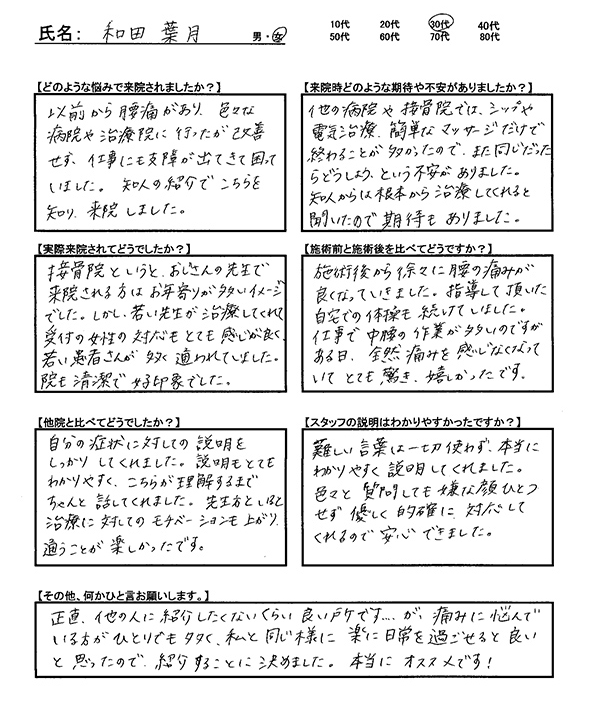 氏名： 和田 葉月 男・女 10代 20代 30代 40代
50代 60代 70代 80代
【どのような悩みで来院されましたか？】
以前から腰痛があり、色々な
病院や治療院に行ったが改善
せず、仕事にも支障が出てきて困って
いました。知人の紹介でこちらを
知り、来院しました。
【来院時どのような期待や不安がありましたか？】
他の病院や接骨院では、シップや
電気治療、簡単なマッサージだけで
終わることが多かったので、また同じだった
らどうしよう、という不安がありました。
知人からは根本から治療してくれると
聞いたので期待もありました。
【実際来院されてどうでしたか？】
接骨院というと、おじさんの先生で
来院される方はお年寄りが多いイメージ
でした。しかし、若い先生が治療してくれて
受付の女性の対応もとても感じが良く、
若い患者さんが多く通われていました。
院も清潔で好印象でした。
【施術前と施術後を比べてどうですか？】
施術後から徐々に腰の痛みが
良くなっていきました。指導して頂いた
自宅での体操も続けていました。
仕事で中腰の作業が多いのですが
ある日、全然痛みを感じなくなって
いてとても驚き、嬉しかったです。
【他院と比べてどうでしたか？】
自分の症状に対しての説明を
しっかりしてくれました。説明もとても
わかりやすく、こちらが理解するまで
ちゃんと話してくれました。先生方といると
治療に対してのモチベーションも上がり、
通うことが楽しかったです。
【スタッフの説明はわかりやすかったですか？】
難しい言葉は一切使わず、本当に
わかりやすく説明してくれました。
色々と質問しても嫌な顔ひとつ
せず優しく的確に対応して
くれるので安心できました。
【その他、何かひと言お願いします。】
正直、他の人に紹介したくないくらい良い所です…. が、痛みに悩んで
いる方がひとりでも多く、私と同じ様に楽に日常を過ごせると良い
と思ったので、紹介することに決めました。本当にオススメです！